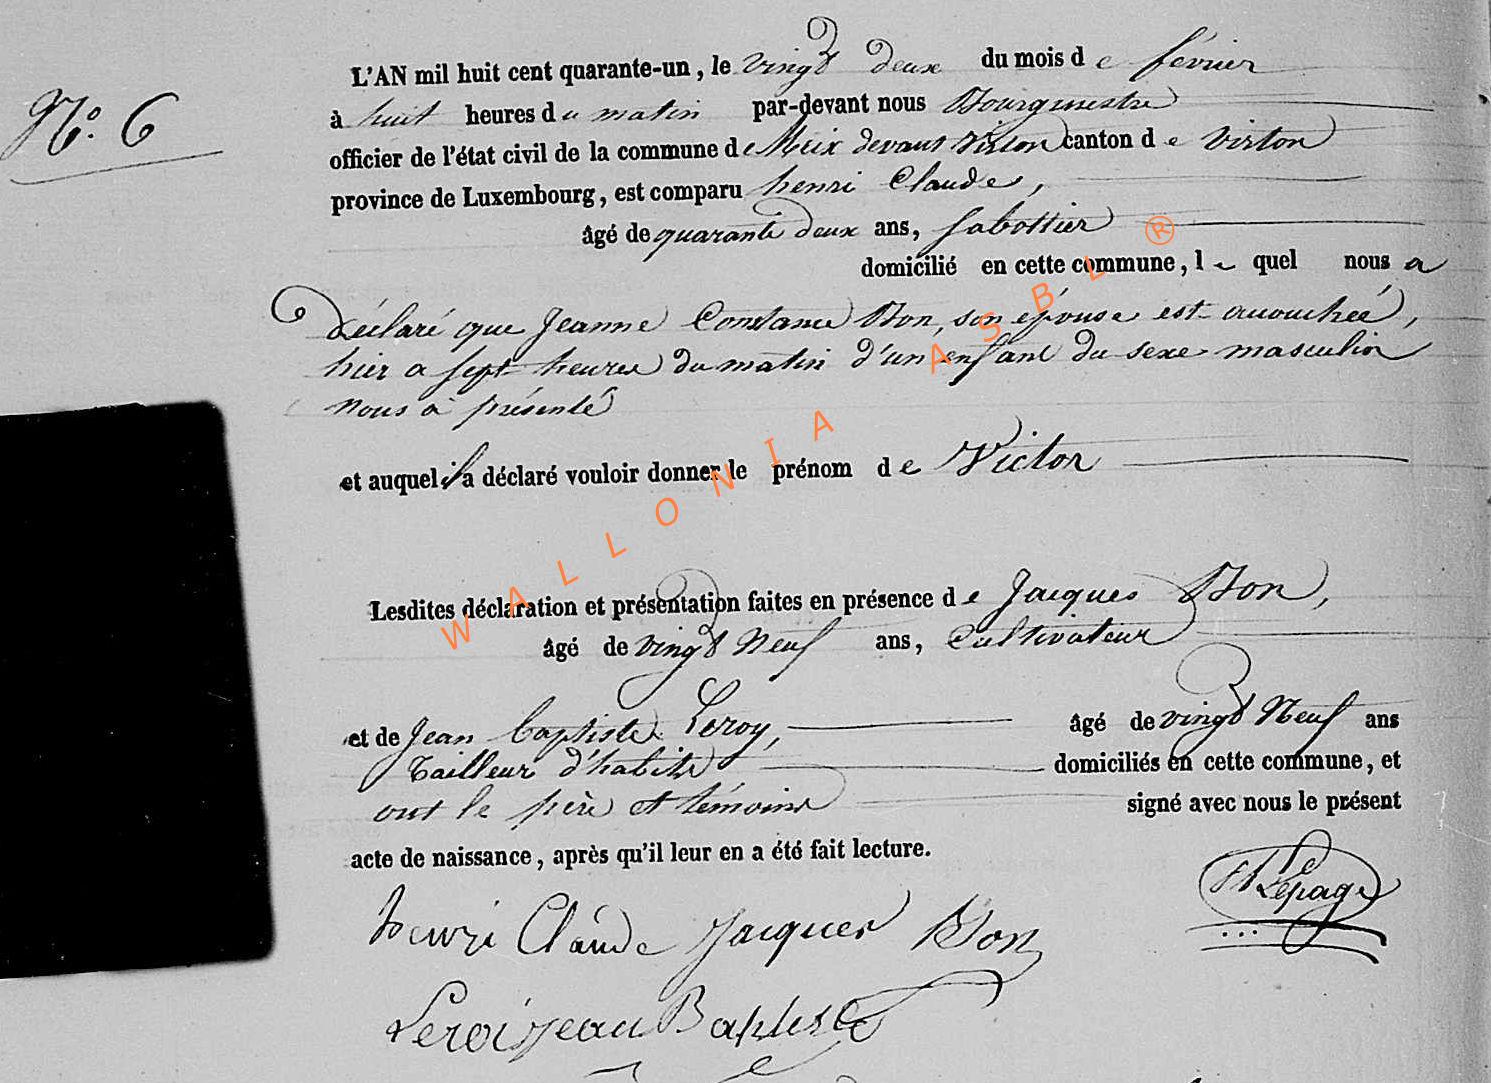 N.º 6
L'AN mil huit cent quarante-un, le vingt deux du mois de février
à huit heures du matin par-devant nous Bourgmestre
officier de l'état civil de la commune de Meix devant Virton canton de Virton
province de Luxembourg, est comparu henri Claude,
âgé de quarante deux ans, sabottier
domicilié en cette commune, le quel nous a
Déclaré que Jeanne Constance Bon, son épouse est accouchée,
hier a sept heures du matin d'un enfant du sexe masculin
nous a présenté
et auquel il a déclaré vouloir donner le prénom de Victor
Lesdites déclaration et présentation faites en présence de Jacques Bon,
âgé de vingt Neuf ans, Cultivateur
et de Jean baptiste Leroy, âgé de vingt Neuf ans
Tailleur d'habits domiciliés en cette commune, et
ont le père et témoins signé avec nous le présent
acte de naissance, après qu'il leur en a été fait lecture.
Lepage
henri Claude Jacques Bon
Leroi jean Baptiste
WALLONIA ASBL ®